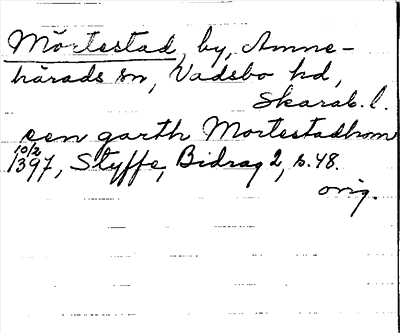 Mörtestad, by, Amne-
härads sn, Vadsbo hd,
Skarab. l.
een garth Mortestadhom
10/2
1397, Styffe, Bidrag 2, s. 48.
orig.